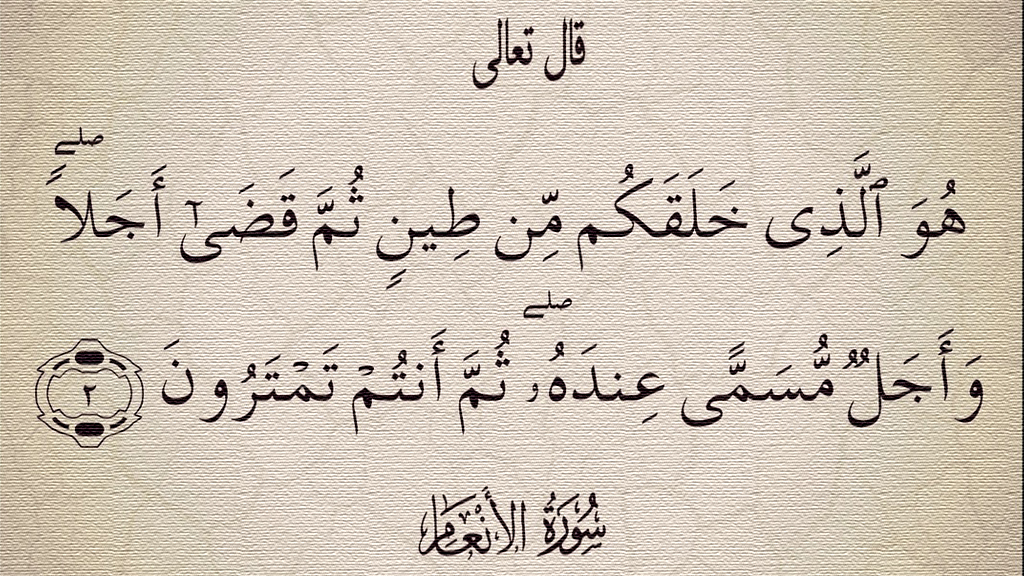 قال تعالى
هُوَ ٱلَّذِى خَلَقَكُم مِّن طِينٍ ثُمَّ قَضَىٰٓ أَجَلاًۖ
وَأَجَلٌ مُّسَمًّى عِندَهُۥۖ ثُمَّ أَنتُمْ تَمْتَرُونَ ٢
سُورَةُ الأَنْعَامِ